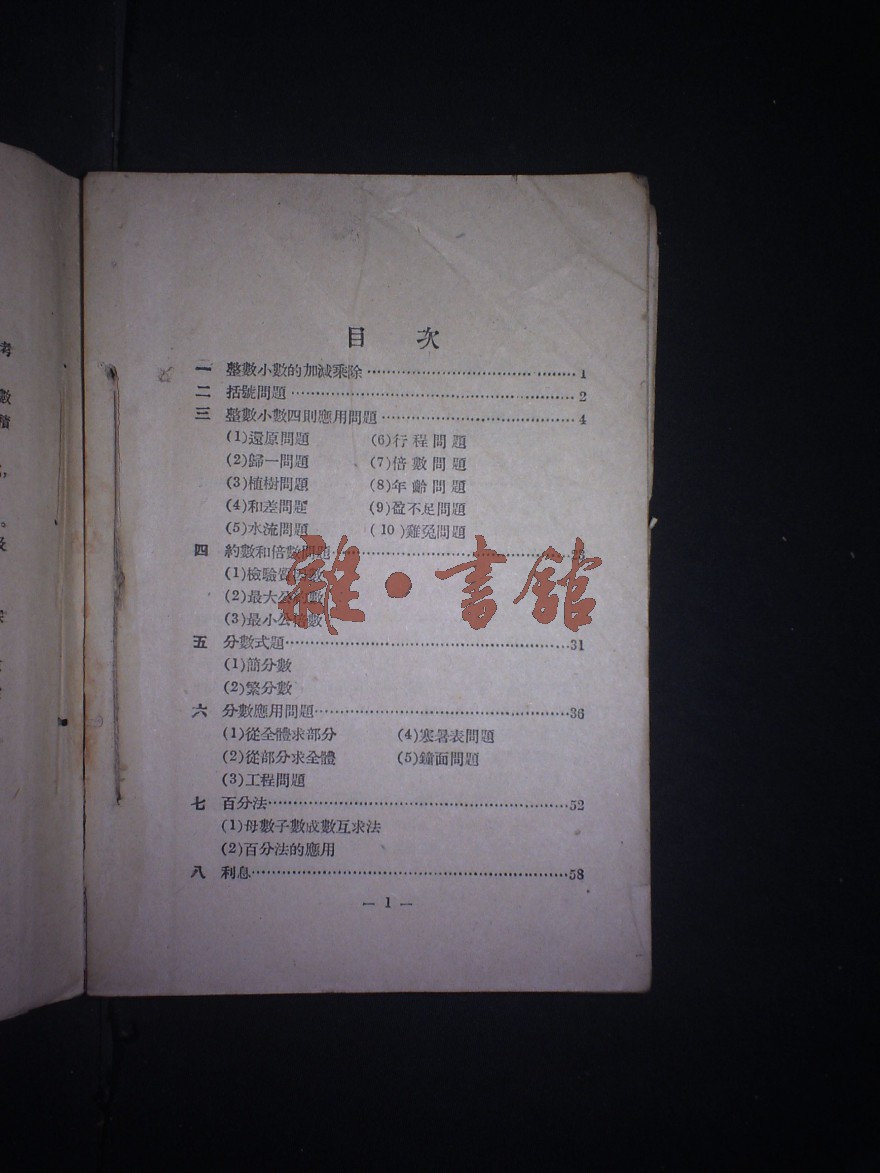 目 次
一 整數小數的加減乘除……………………………1
二 括號問題……………………………2
三 整數小數四則應用問題……………………………4
(1)還原問題 (6)行程問題
(2)歸一問題 (7)倍數問題
(3)植樹問題 (8)年齡問題
(4)和差問題 (9)盈不足問題
(5)水流問題 (10)雞兔問題
四 約數和倍數問題……………………………
(1)檢驗質因數
(2)最大公約數
(3)最小公倍數
五 分數式題……………………………31
(1)簡分數
(2)繁分數
六 分數應用問題……………………………36
(1)從全體求部分 (4)寒暑表問題
(2)從部分求全體 (5)鐘面問題
(3)工程問題
七 百分法……………………………52
(1)母數子數成數互求法
(2)百分法的應用
八 利息……………………………58
— 1 —
雜·書館